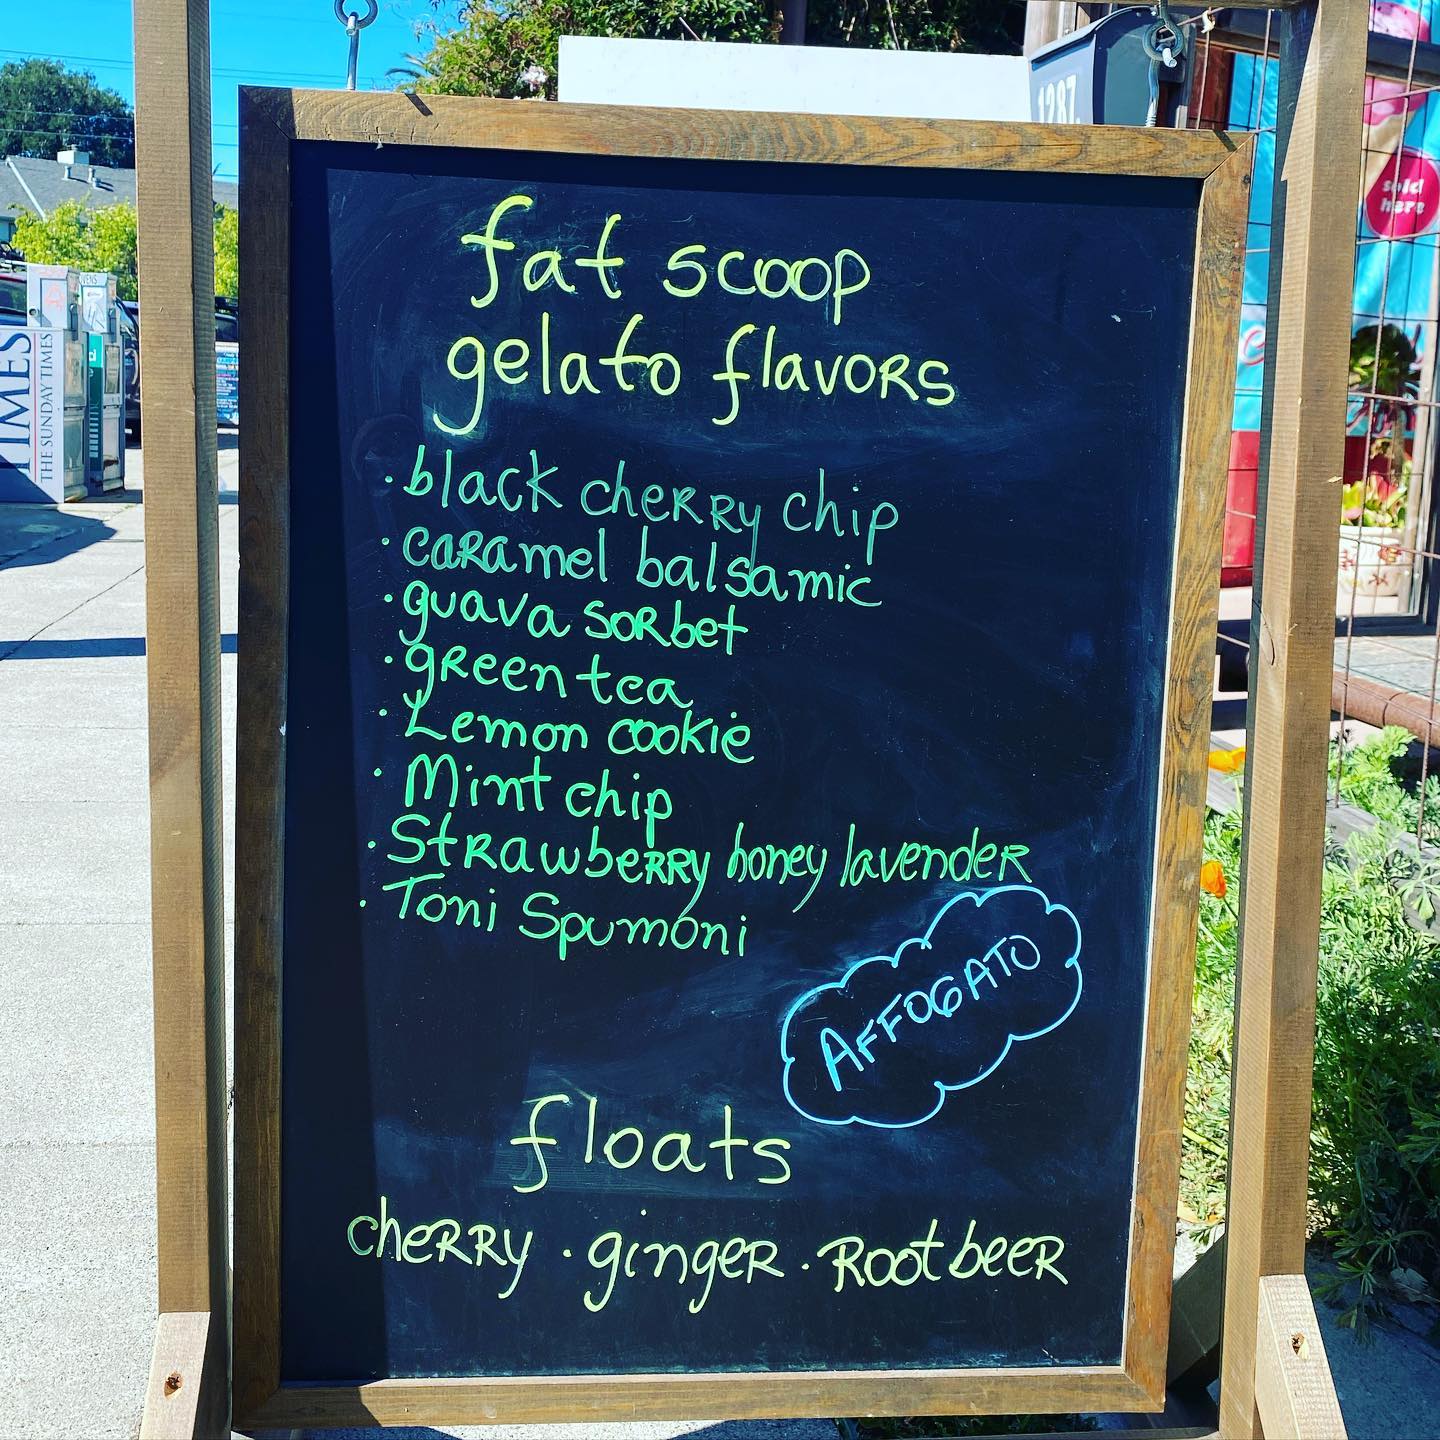 fat scoop
gelato flavors
· black cherry chip
· caramel balsamic
· guava sorbet
· green tea
· Lemon cookie
· Mint chip
· Strawberry honey lavender
· Toni Spumoni
AFFOGATO
floats
cherry · ginger · Root beer
1287
sold
here
TIMES
THE SUNDAY TIMES